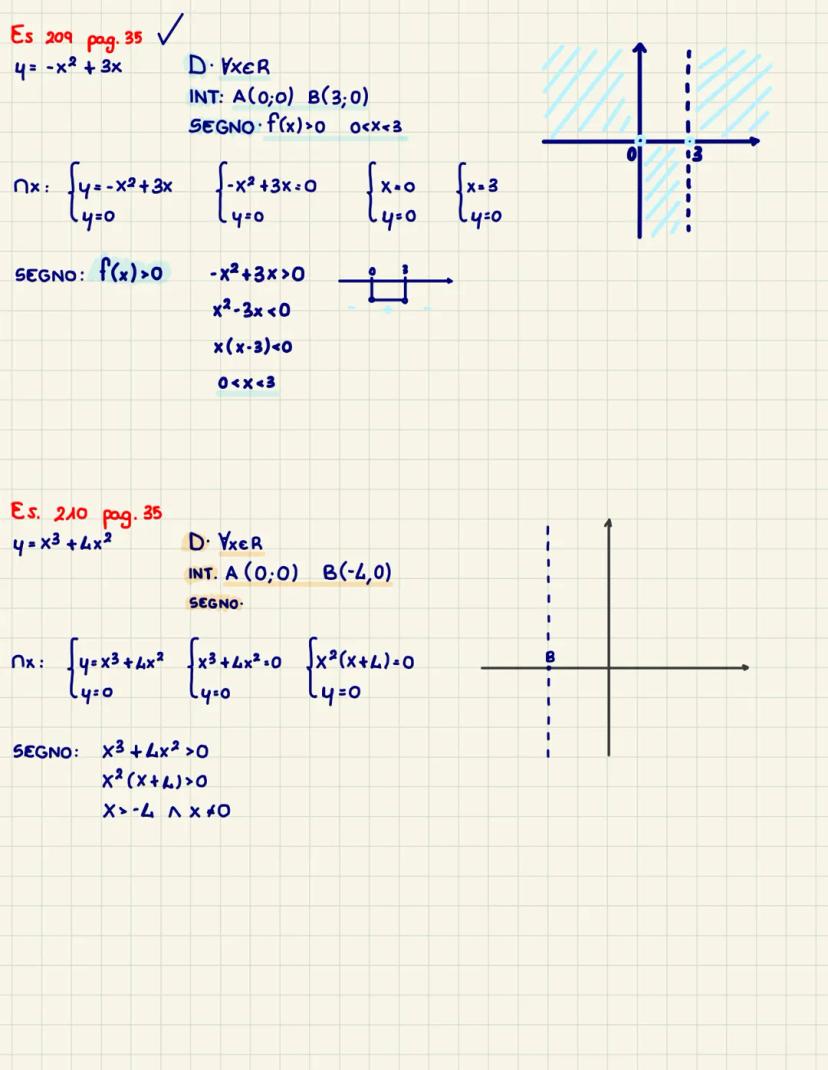 Es 209 pag. 35 ✓
y = -x² + 3x
D: ∀x∈R
INT: A(0;0) B(3;0)
SEGNO: f(x)>0 0<x<3
0 3
∩x: {y=-x²+3x {-x²+3x=0 {x=0 {x=3
y=0 y=0 y=0 y=0
SEGNO: f(x)>0 -x²+3x>0
0 3
- + -
x²-3x<0
x(x-3)<0
0<x<3
Es. 210 pag. 35
y = x³ + 4x²
D: ∀x∈R
INT. A(0;0) B(-4,0)
SEGNO:
B
∩x: {y=x³+4x² {x³+4x²=0 {x²(x+4)=0
y=0 y=0 y=0
SEGNO: x³+4x²>0
x²(x+4)>0
x>-4 ∧ x≠0